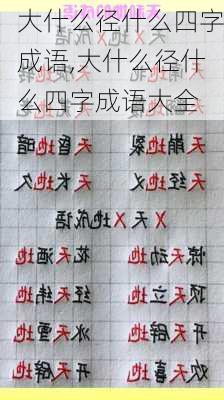 大什么径什么四字
成语,大什么径什
么四字成语大全
天崩地裂 天昏地暗
天经地义 天长地久
天X地X成语
惊天动地 花天酒地
顶天立地 经天纬地
开天辟地 冰天雪地
欢天喜地 开天辟地